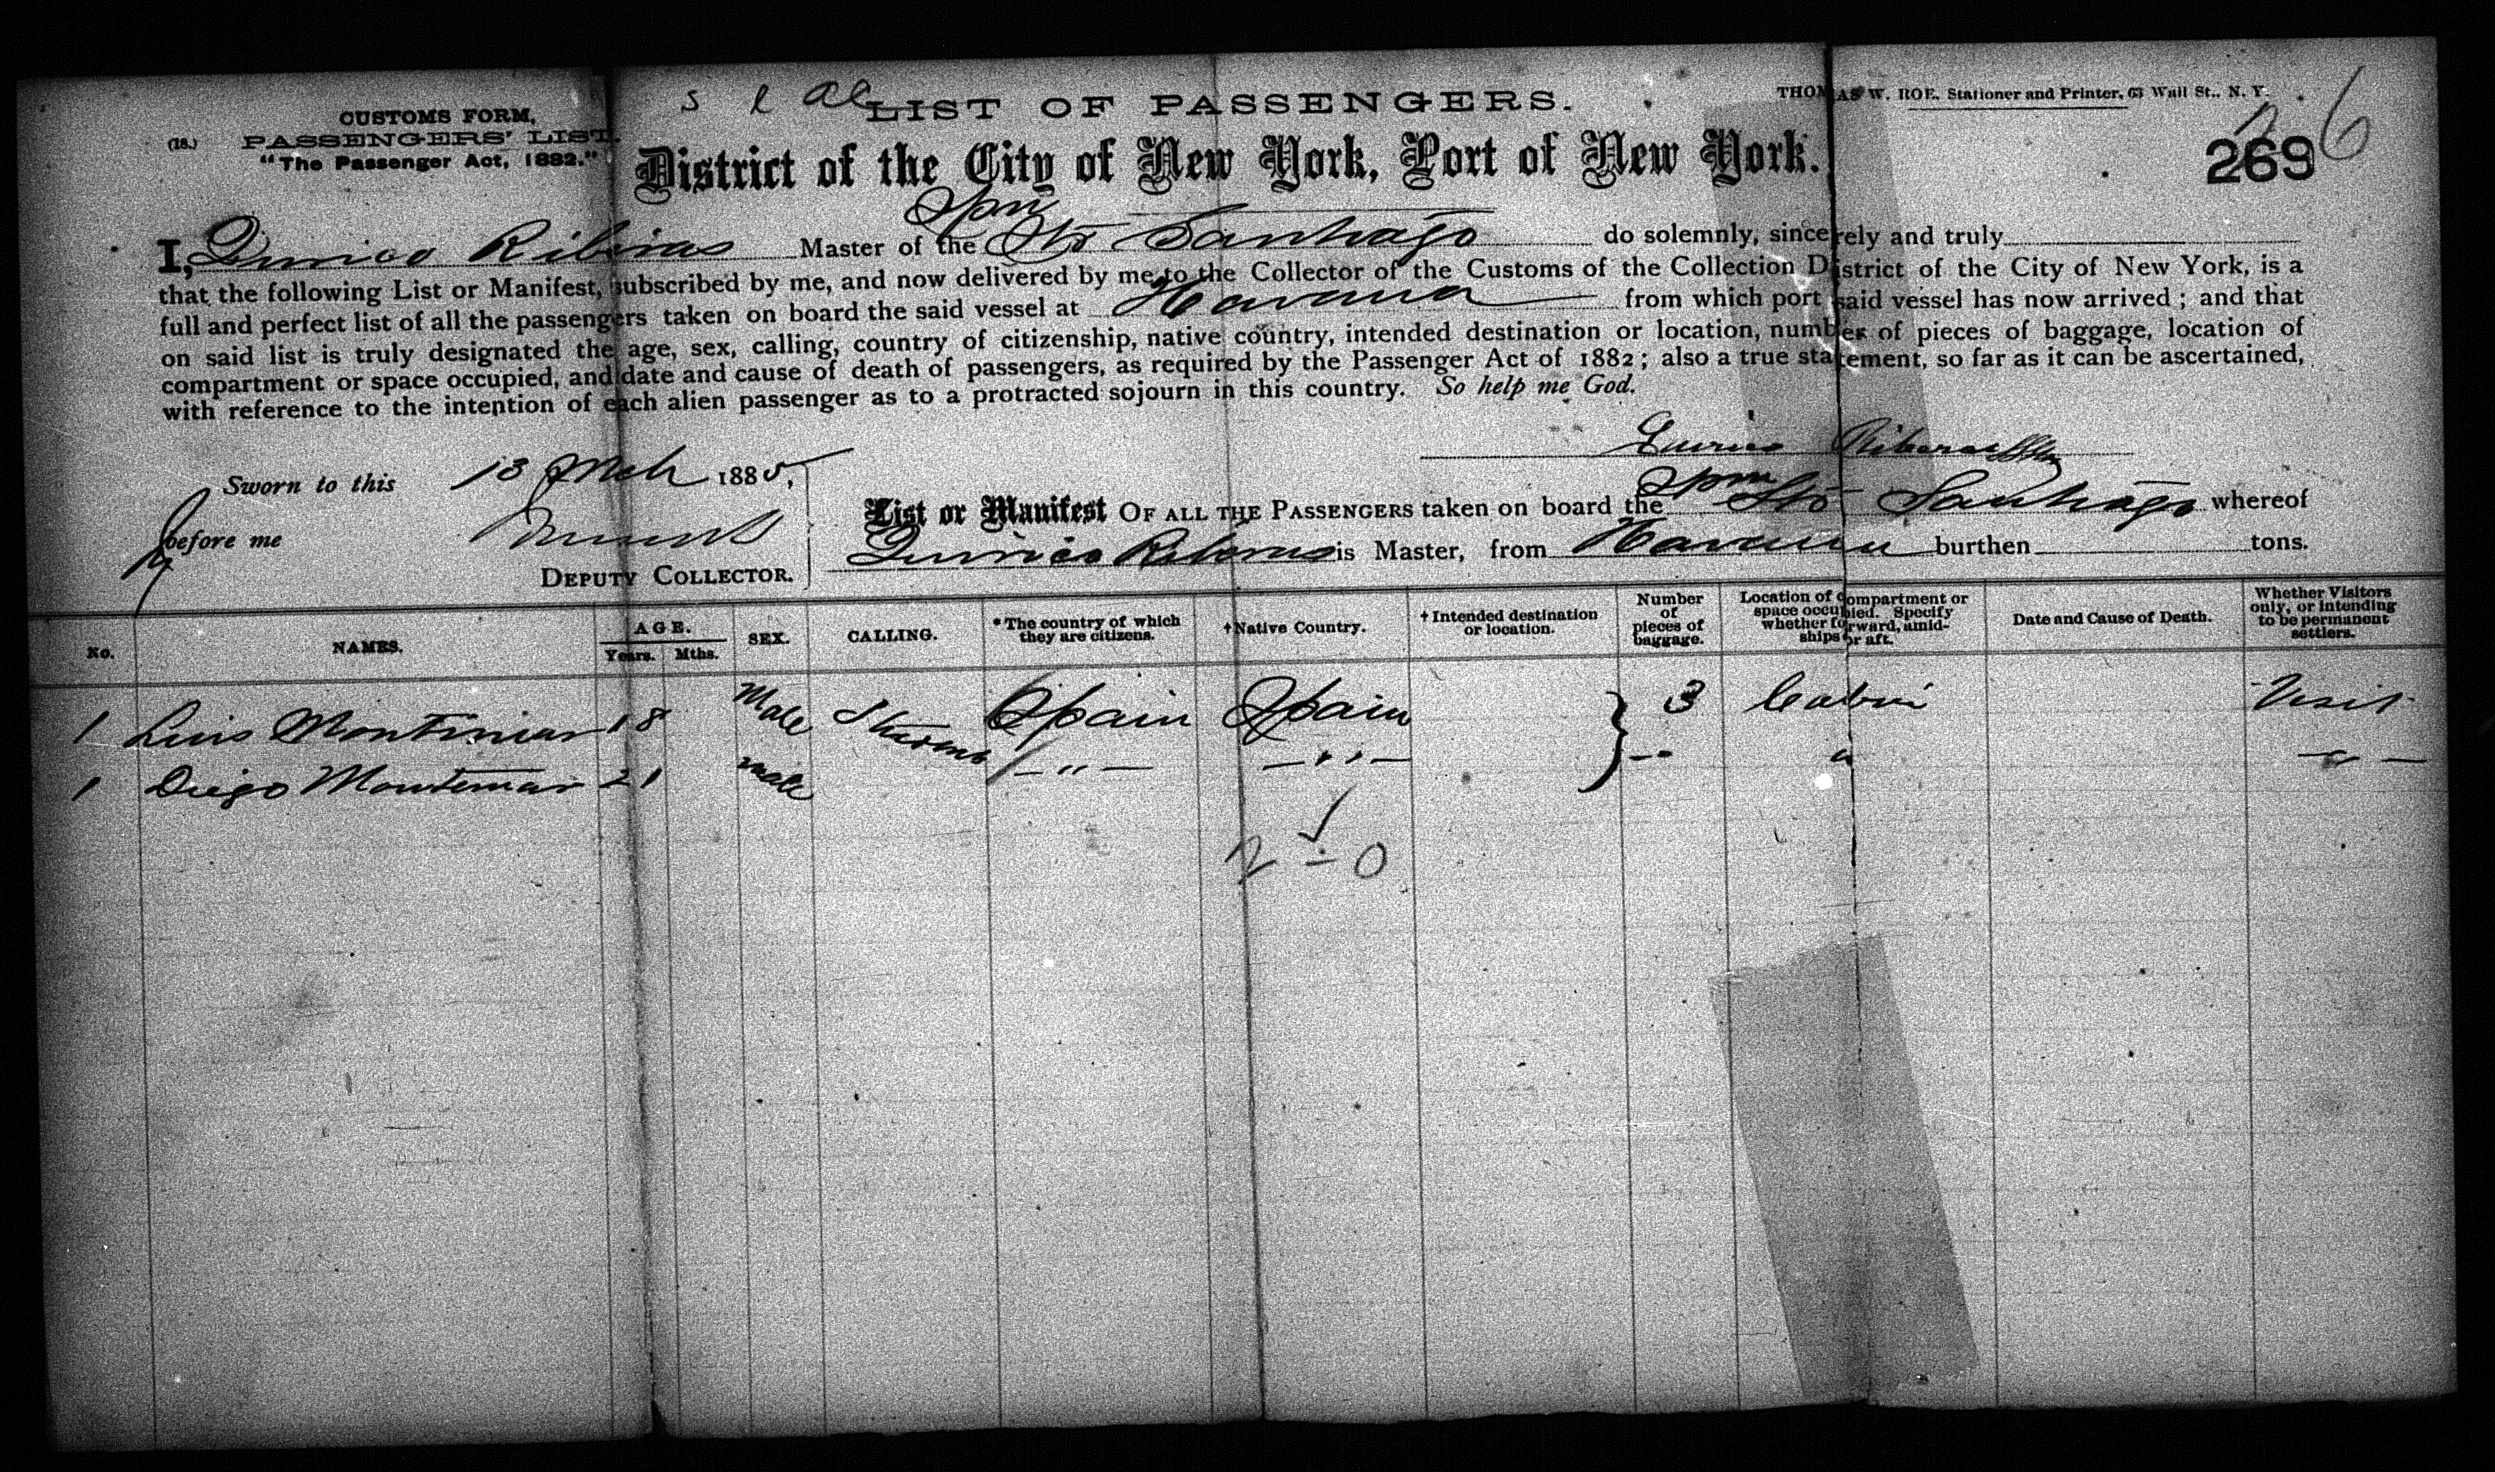 s l al LIST OF PASSENGERS.
THOMAS W. ROE, Stationer and Printer, 63 Wall St., N. Y.
CUSTOMS FORM,
(18.) PASSENGERS' LIST.
"The Passenger Act, 1882."
6
269
District of the City of New York, Port of New York.
Span
I, Quirico Riberas Master of the Str Santiago do solemnly, sincerely and truly
that the following List or Manifest, subscribed by me, and now delivered by me to the Collector of the Customs of the Collection District of the City of New York, is a
full and perfect list of all the passengers taken on board the said vessel at Havana from which port said vessel has now arrived; and that
on said list is truly designated the age, sex, calling, country of citizenship, native country, intended destination or location, number of pieces of baggage, location of
compartment or space occupied, and date and cause of death of passengers, as required by the Passenger Act of 1882; also a true statement, so far as it can be ascertained,
with reference to the intention of each alien passenger as to a protracted sojourn in this country. So help me God.
Quirico Riberas
Sworn to this 13 Mch 1885,
before me
DEPUTY COLLECTOR.
Span
List or Manifest OF ALL THE PASSENGERS taken on board the Str Santiago whereof
Quirico Riberas is Master, from Havana burthen tons.
No. NAMES. AGE. Years. Mths. SEX. CALLING. * The country of which they are citizens. † Native Country. † Intended destination or location. Number of pieces of baggage. Location of compartment or space occupied. Specify whether forward, amidships or aft. Date and Cause of Death. Whether Visitors only, or intending to be permanent settlers.
1 Luis Montimar 18 Male Spain Spain 3 Cabin Visit
1 Diego Montemar 21 male — " — — " — — " " — " —
2 - 0